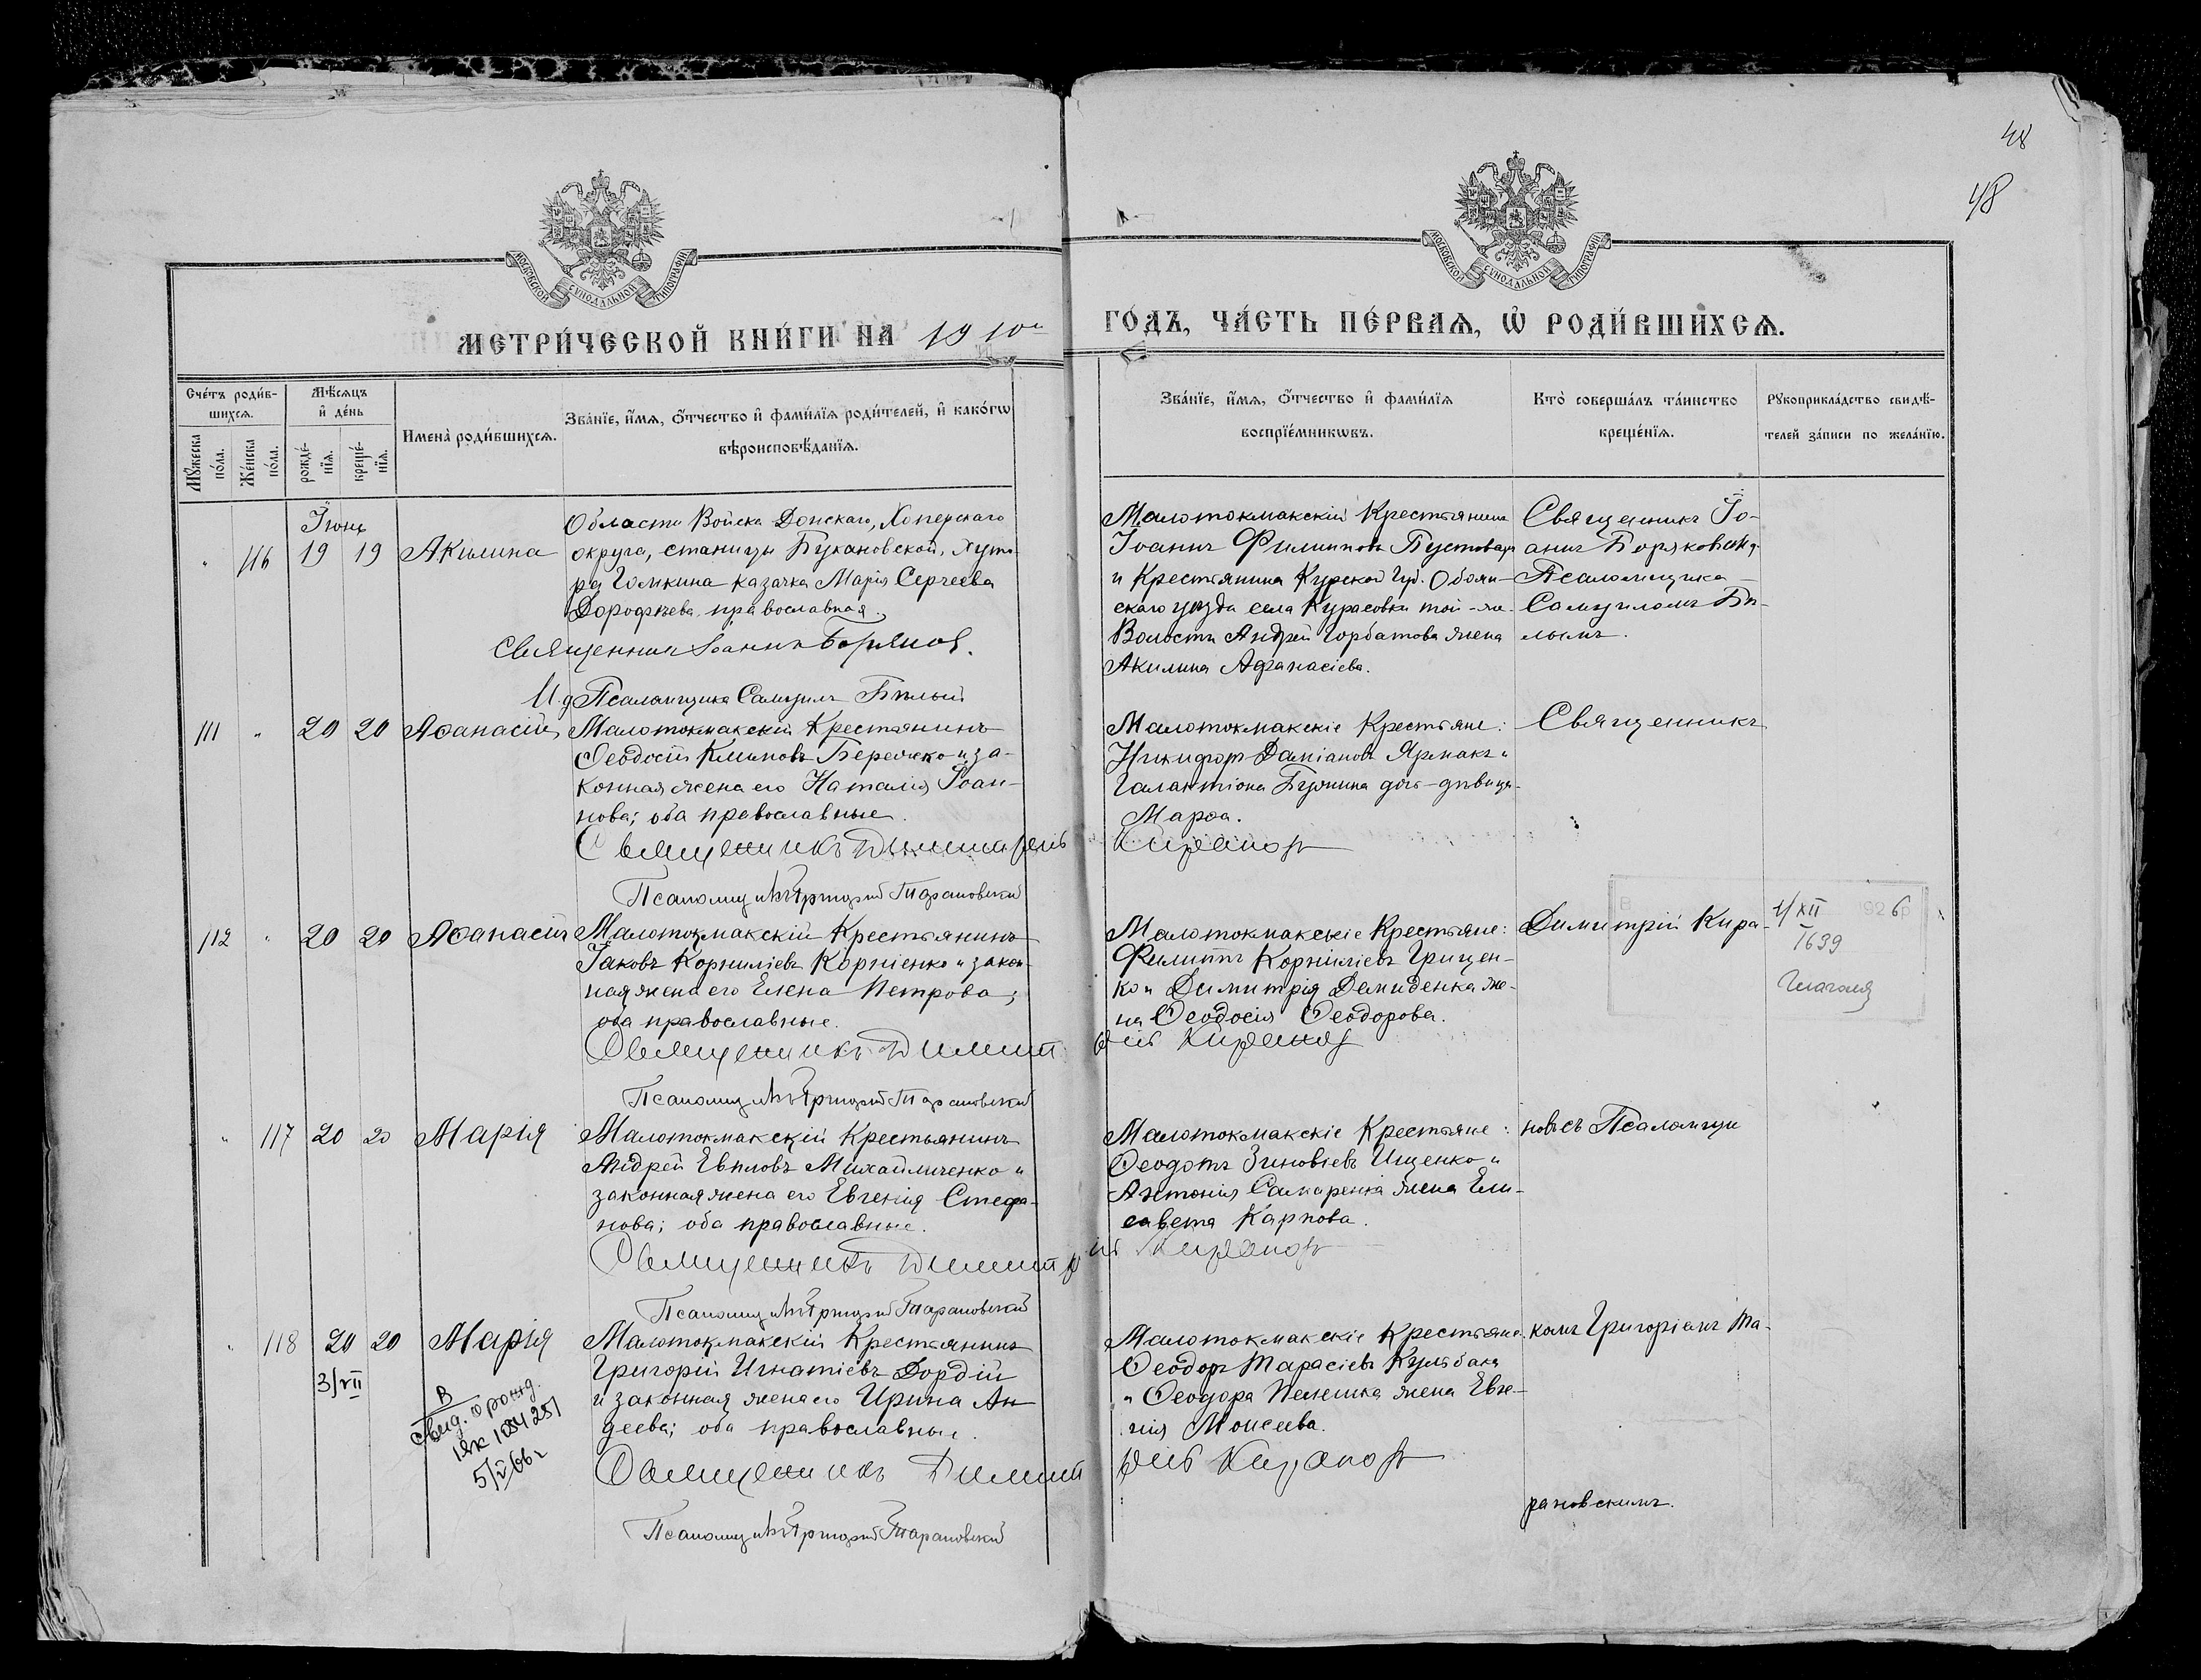 48
48
МОСКОВСКОЙ СѴНОДАЛЬНОЙ ТИПОГРАФІИ
МОСКОВСКОЙ СѴНОДАЛЬНОЙ ТИПОГРАФІИ
МЕТРИ́ЧЕСКОЙ КНИ́ГИ НА 1910й
ГО́ДЪ, ЧА́СТЬ ПЕ́РВАѦ, Ѡ҆ РОДИ́ВШИХСѦ.
Сче́тъ роди́в-
шихсѧ.
Мꙋ́жеска по́ла.
Же́нска по́ла.
Мѣ́сѧцъ
и҆ де́нь
рожде́-
нїѧ.
креще́-
нїѧ.
Имена̀ роди́вшихсѧ.
Зва́нїе, и҆́мѧ, ѻ҆́тчество и҆ фами́лїѧ роди́телей, и҆ како́гѡ
вѣроисповѣ́данїѧ.
Зва́нїе, и҆́мѧ, ѻ҆́тчество и҆ фами́лїѧ
воспрїе́мникѡвъ.
Кто̀ соверша́лъ та́инство
креще́нїѧ.
Рꙋкоприкла́дство свидѣ́-
телей за́писи по жела́нїю.
Іюнь
" 116 19 19 Акилина
Области Войска Донскаго, Хоперскаго
округа, станицы Букановской, хуто-
ра Гомкина казачка Марія Сергеева
Дорофѣева, православная.
Священникъ Іоаннъ Боряков.
И.д. Псаломщика Самуилъ Бѣлый
Малотокмакскій Крестьянинъ
Іоаннъ Филиповъ Пустоваръ
и Крестьянина Курской Губ. Обоян-
скаго уѣзда села Курасовки той-же
Волости Андрей Горбатова жена
Акилина Афанасіева.
Священникъ Іо-
аннъ Боряковъ и.д.
Псаломщика
Самуиломъ Бѣ-
лымъ.
111 " 20 20 Аѳанасій
Малотокмакскій Крестьянинъ
Ѳеодосій Климовъ Бережко и за-
конная жена его Наталія Іоан-
нова; оба православные.
Священникъ Димитрій Кирановъ
Псаломщикъ Григорій Тарановскій
Малотокмакскіе Крестьяне:
Никифоръ Даміановъ Ярмакъ и
Галактіона Бужина дочь-дѣвица
Марѳа.
Священникъ
112 " 20 20 Аѳанасій
Малотокмакскій Крестьянинъ
Іаковъ Корниліевъ Корніенко и закон-
ная жена его Елена Петрова;
оба православные.
Священникъ Димитрій Кирановъ
Псаломщикъ Григорій Тарановскій
Малотокмакскіе Крестьяне:
Филиппъ Корниліевъ Грицен-
ко и Димитрія Демиденка же-
на Ѳеодосія Ѳеодорова.
Димитрій Кира-
1/XII 1926 р
1639
" 117 20 20 Марія
Малотокмакскій Крестьянинъ
Андрей Евѳиловъ Михайличенко и
законная жена его Евгенія Стефа-
нова; оба православные.
Священникъ Димитрій Кирановъ
Псаломщикъ Григорій Тарановскій
Малотокмакскіе Крестьяне:
Ѳеодотъ Зиновіевъ Ищенко и
Антонія Самаренка жена Ели-
савета Карпова.
новъ съ Псаломщи
" 118 20 20 Марія
3/VII
В
Свид. о рожд.
1054251
5/V 66 г
Малотокмакскій Крестьянинъ
Григорій Игнатіевъ Дордій
и законная жена его Ирина Ан
деева; оба православные.
Священникъ Димитрій Кирановъ
Псаломщикъ Григорій Тарановскій
Малотокмакскіе Крестьяне:
Ѳеодоръ Тарасіевъ Кулябака
и Ѳеодора Пелешка жена Евге-
нія Моисеева.
комъ Григоріемъ Та-
рановскимъ.